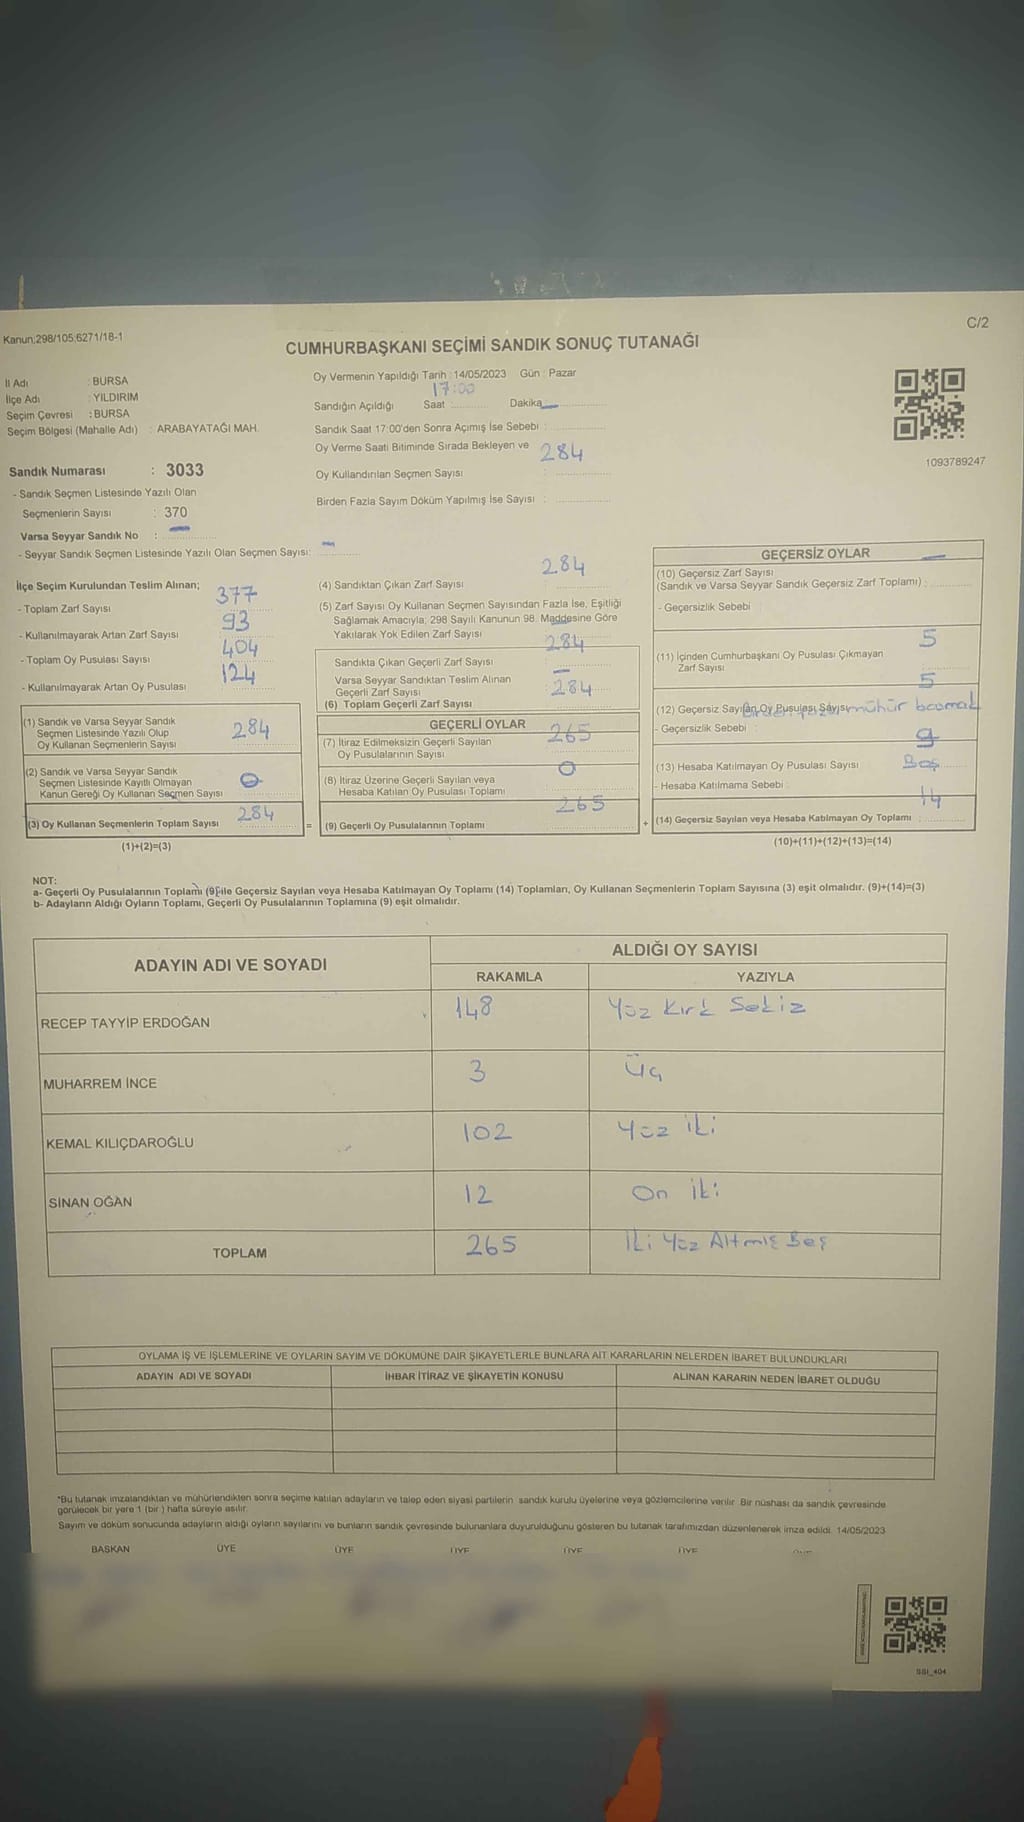 Kanun;298/105;6271/18-1
C/2
CUMHURBAŞKANI SEÇİMİ SANDIK SONUÇ TUTANAĞI
İl Adı : BURSA
İlçe Adı : YILDIRIM
Seçim Çevresi : BURSA
Seçim Bölgesi (Mahalle Adı) : ARABAYATAĞI MAH.
Sandık Numarası : 3033
- Sandık Seçmen Listesinde Yazılı Olan
Seçmenlerin Sayısı : 370
Varsa Seyyar Sandık No : —
- Seyyar Sandık Seçmen Listesinde Yazılı Olan Seçmen Sayısı: —
Oy Vermenin Yapıldığı Tarih : 14/05/2023 Gün : Pazar
Sandığın Açıldığı Saat 17:00 Dakika —
Sandık Saat 17:00'den Sonra Açımış İse Sebebi :
Oy Verme Saati Bitiminde Sırada Bekleyen ve
Oy Kullandırılan Seçmen Sayısı : 284
Birden Fazla Sayım Döküm Yapılmış İse Sayısı :
1093789247
İlçe Seçim Kurulundan Teslim Alınan;
- Toplam Zarf Sayısı 377
- Kullanılmayarak Artan Zarf Sayısı 93
- Toplam Oy Pusulası Sayısı 404
- Kullanılmayarak Artan Oy Pusulası 124
(1) Sandık ve Varsa Seyyar Sandık
Seçmen Listesinde Yazılı Olup
Oy Kullanan Seçmenlerin Sayısı 284
(2) Sandık ve Varsa Seyyar Sandık
Seçmen Listesinde Kayıtlı Olmayan
Kanun Gereği Oy Kullanan Seçmen Sayısı 0
(3) Oy Kullanan Seçmenlerin Toplam Sayısı 284
(1)+(2)=(3)
(4) Sandıktan Çıkan Zarf Sayısı 284
(5) Zarf Sayısı Oy Kullanan Seçmen Sayısından Fazla İse, Eşitliği
Sağlamak Amacıyla, 298 Sayılı Kanunun 98. Maddesine Göre
Yakılarak Yok Edilen Zarf Sayısı —
Sandıkta Çıkan Geçerli Zarf Sayısı 284
Varsa Seyyar Sandıktan Teslim Alınan
Geçerli Zarf Sayısı —
(6) Toplam Geçerli Zarf Sayısı 284
GEÇERLİ OYLAR
(7) İtiraz Edilmeksizin Geçerli Sayılan
Oy Pusulalarının Sayısı 265
(8) İtiraz Üzerine Geçerli Sayılan veya
Hesaba Katılan Oy Pusulası Toplamı 0
= (9) Geçerli Oy Pusulalarının Toplamı 265
GEÇERSİZ OYLAR
(10) Geçersiz Zarf Sayısı —
(Sandık ve Varsa Seyyar Sandık Geçersiz Zarf Toplamı) :
- Geçersizlik Sebebi :
(11) İçinden Cumhurbaşkanı Oy Pusulası Çıkmayan
Zarf Sayısı 5
(12) Geçersiz Sayılan Oy Pusulası Sayısı 5
- Geçersizlik Sebebi : Birden fazla mühür basmak
(13) Hesaba Katılmayan Oy Pusulası Sayısı 9
- Hesaba Katılmama Sebebi : Boş
+ (14) Geçersiz Sayılan veya Hesaba Katılmayan Oy Toplamı : 14
(10)+(11)+(12)+(13)=(14)
NOT:
a- Geçerli Oy Pusulalarının Toplamı (9) ile Geçersiz Sayılan veya Hesaba Katılmayan Oy Toplamı (14) Toplamları, Oy Kullanan Seçmenlerin Toplam Sayısına (3) eşit olmalıdır. (9)+(14)=(3)
b- Adayların Aldığı Oyların Toplamı, Geçerli Oy Pusulalarının Toplamına (9) eşit olmalıdır.
ADAYIN ADI VE SOYADI
ALDIĞI OY SAYISI
RAKAMLA YAZIYLA
RECEP TAYYİP ERDOĞAN 148 Yüz Kırk Sekiz
MUHARREM İNCE 3 Üç
KEMAL KILIÇDAROĞLU 102 Yüz İki
SİNAN OĞAN 12 On iki
TOPLAM 265 İki Yüz Altmış Beş
OYLAMA İŞ VE İŞLEMLERİNE VE OYLARIN SAYIM VE DÖKÜMÜNE DAİR ŞİKAYETLERLE BUNLARA AİT KARARLARIN NELERDEN İBARET BULUNDUKLARI
ADAYIN ADI VE SOYADI İHBAR İTİRAZ VE ŞİKAYETİN KONUSU ALINAN KARARIN NEDEN İBARET OLDUĞU
*Bu tutanak imzalandıktan ve mühürlendikten sonra seçime katılan adayların ve talep eden siyasi partilerin sandık kurulu üyelerine veya gözlemcilerine verilir. Bir nüshası da sandık çevresinde
görülecek bir yere 1 (bir ) hafta süreyle asılır.
Sayım ve döküm sonucunda adayların aldığı oyların sayılarını ve bunların sandık çevresinde bulunanlara duyurulduğunu gösteren bu tutanak tarafımızdan düzenlenerek imza edildi. 14/05/2023
BAŞKAN ÜYE ÜYE ÜYE ÜYE ÜYE
SSI_404